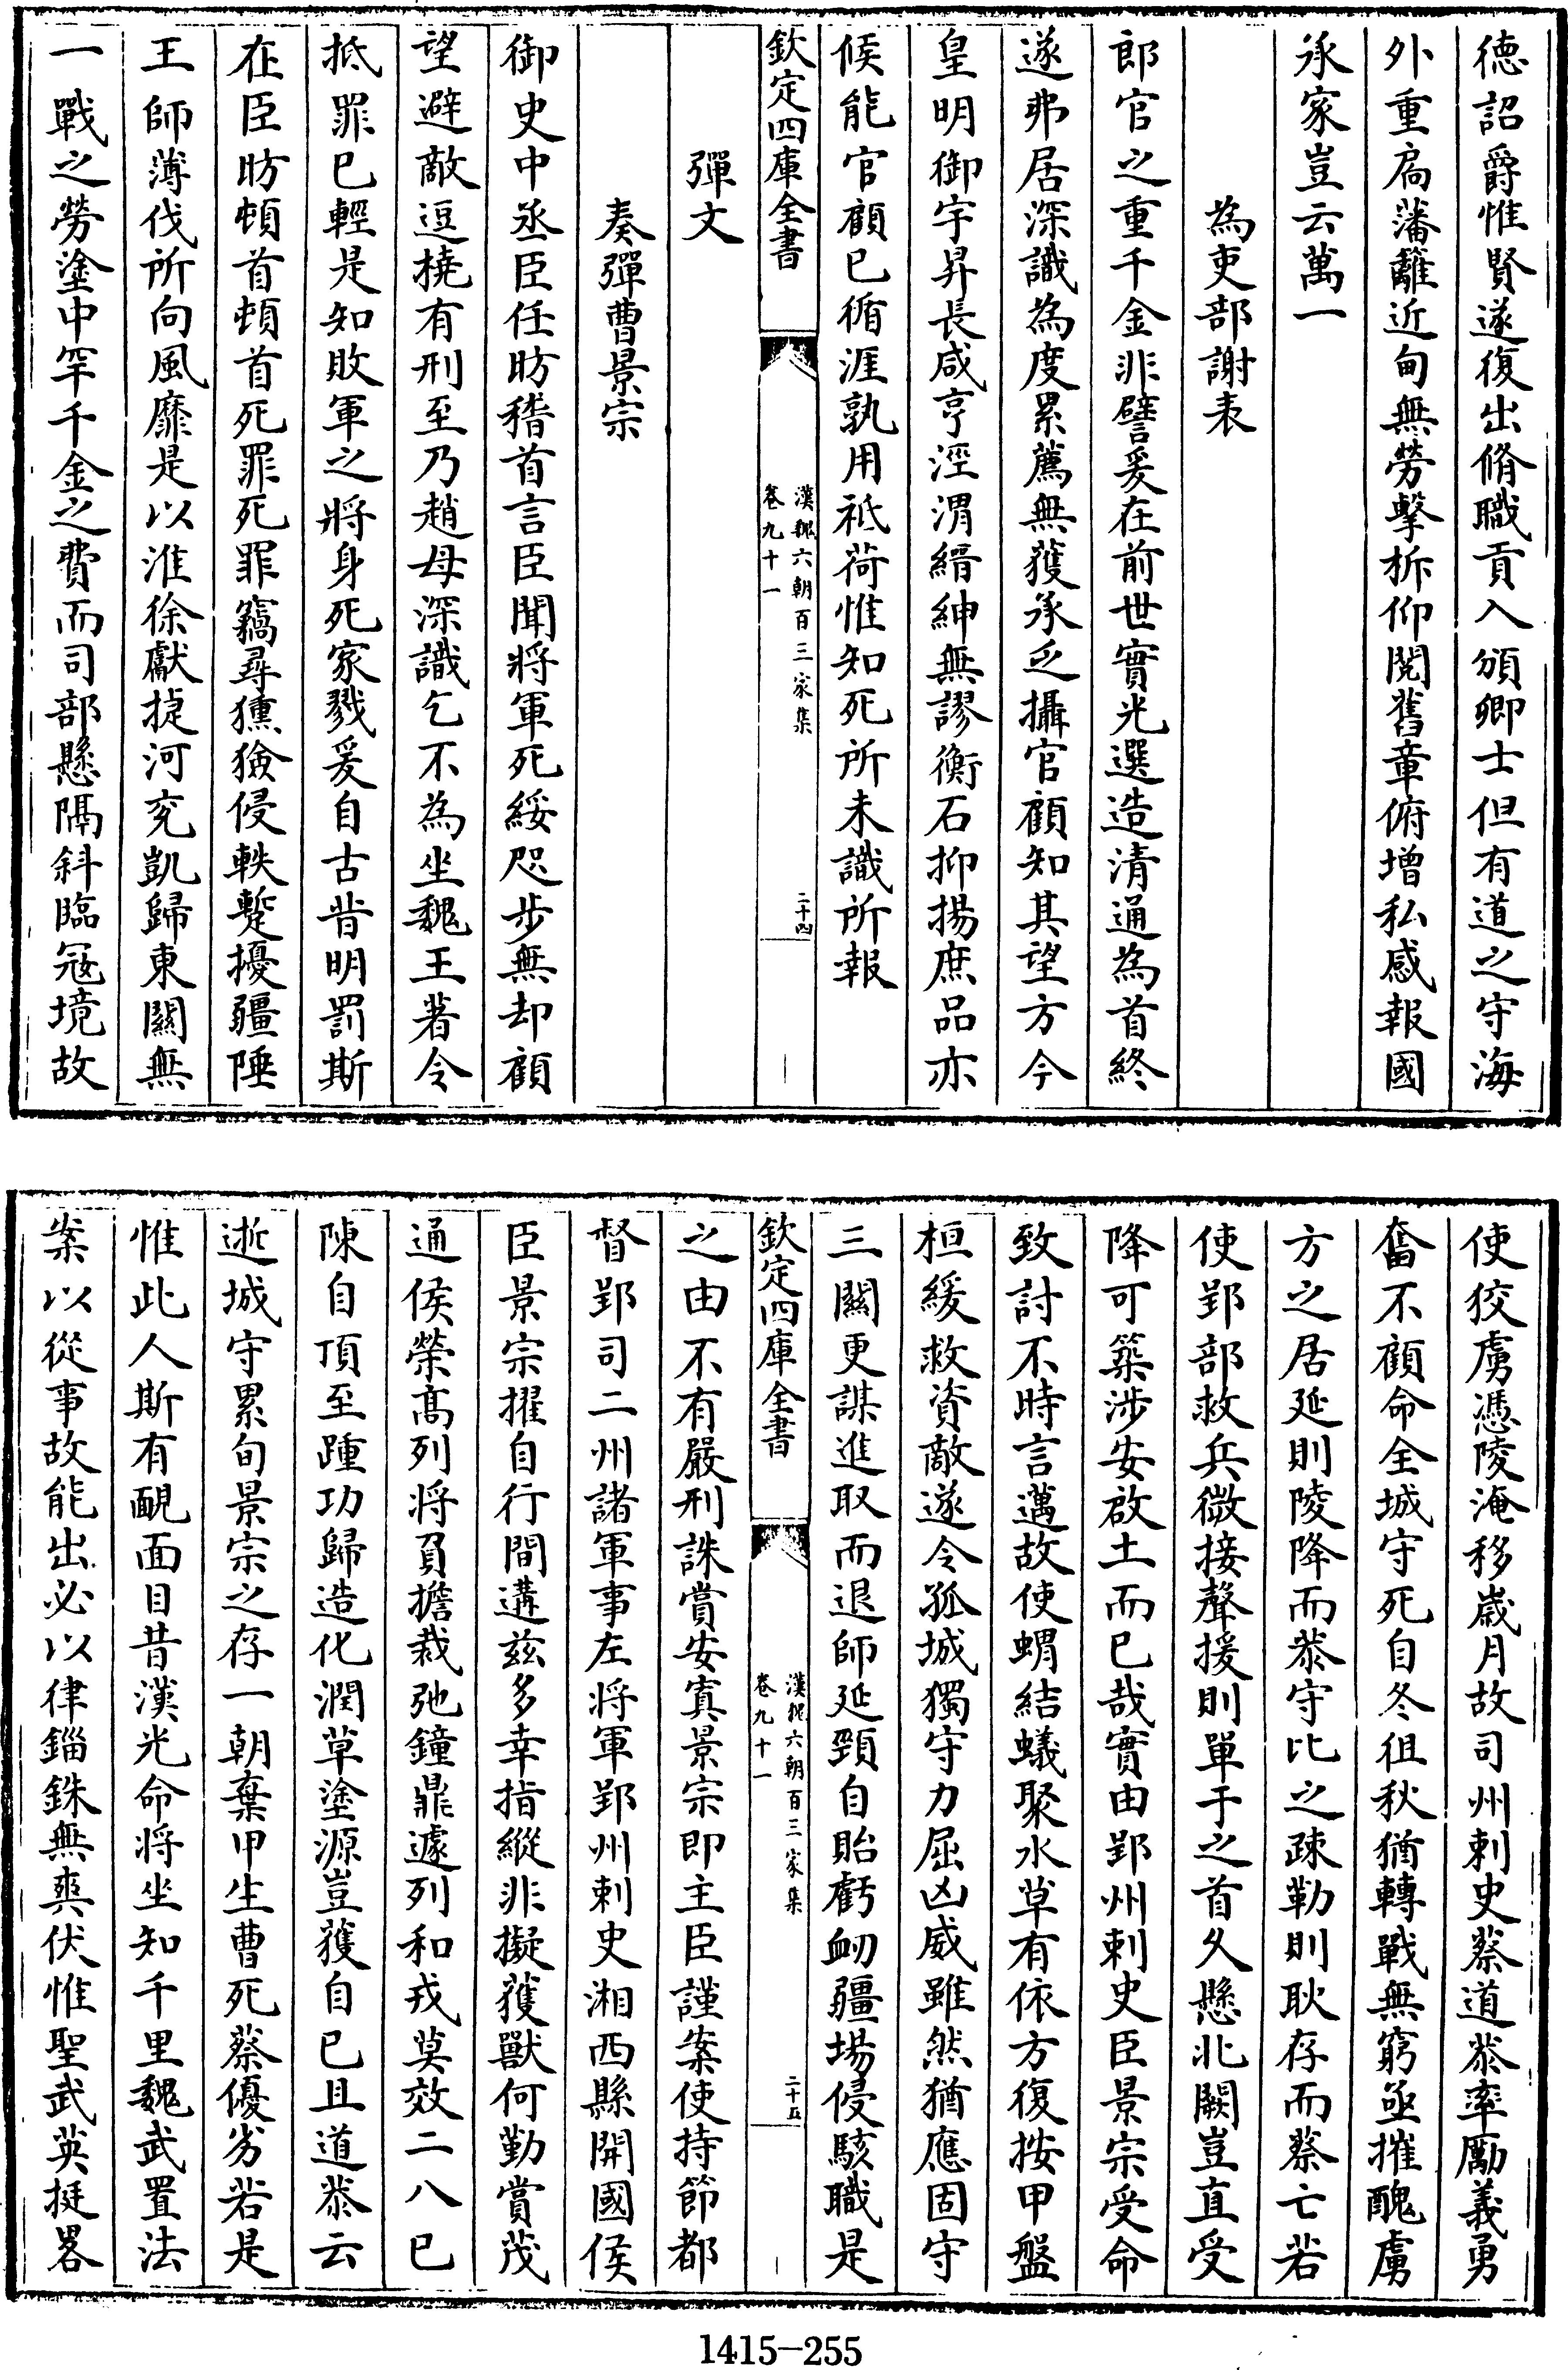 德詔爵惟賢遂復出脩職貢入頒卿士但有道之守海
外重扄藩籬近甸無勞擊柝仰閱舊章俯增私感報國
承家豈云萬一
為吏部謝表
郎官之重千金非譬爰在前世實光選造清通為首終
遂弗居深識為度累薦無獲承乏攝官顧知其望方今
皇明御宇昇長咸亨涇渭縉紳無謬衡石抑揚庶品亦
候能官顧已循涯孰用祗荷惟知死所未識所報
欽定四庫全書
漢魏六朝百三家集
卷九十一
二十四
彈文
奏彈曹景宗
御史中丞臣任昉稽首言臣聞將軍死綏咫步無却顧
望避敵逗撓有刑至乃趙母深識乞不為坐魏王著令
抵罪已輕是知敗軍之將身死家戮爰自古昔明罰斯
在臣昉頓首頓首死罪死罪竊尋獯獫侵軼蹔擾疆陲
王師薄伐所向風靡是以淮徐獻捷河兖凱歸東關無
一戰之勞塗中罕千金之費而司部懸隔斜臨冦境故
使狡虜憑陵淹移歲月故司州刺史蔡道恭率厲義勇
奮不顧命全城守死自冬徂秋猶轉戰無窮亟摧醜虜
方之居延則陵降而恭守比之疎勒則耿存而蔡亡若
使郢部救兵微接聲援則單于之首久懸北闕豈直受
降可築涉安啟土而已哉實由郢州刺史臣景宗受命
致討不時言邁故使蝟結蟻聚水草有依方復按甲盤
桓緩救資敵遂令孤城獨守力屈凶威雖然猶應固守
三關更謀進取而退師延頸自貽虧衂疆場侵駭職是
欽定四庫全書
漢魏六朝百三家集
卷九十一
二十五
之由不有嚴刑誅賞安寘景宗即主臣謹案使持節都
督郢司二州諸軍事左將軍郢州刺史湘西縣開國侯
臣景宗擢自行間遘兹多幸指縱非擬獲獸何勤賞茂
通侯榮髙列將負擔裁弛鐘鼎遽列和戎莫效二八已
陳自頂至踵功歸造化潤草塗源豈獲自已且道恭云
逝城守累旬景宗之存一朝棄甲生曹死蔡優劣若是
惟此人斯有靦面目昔漢光命將坐知千里魏武置法
案以從事故能出必以律錙銖無爽伏惟聖武英挺畧
1415-255